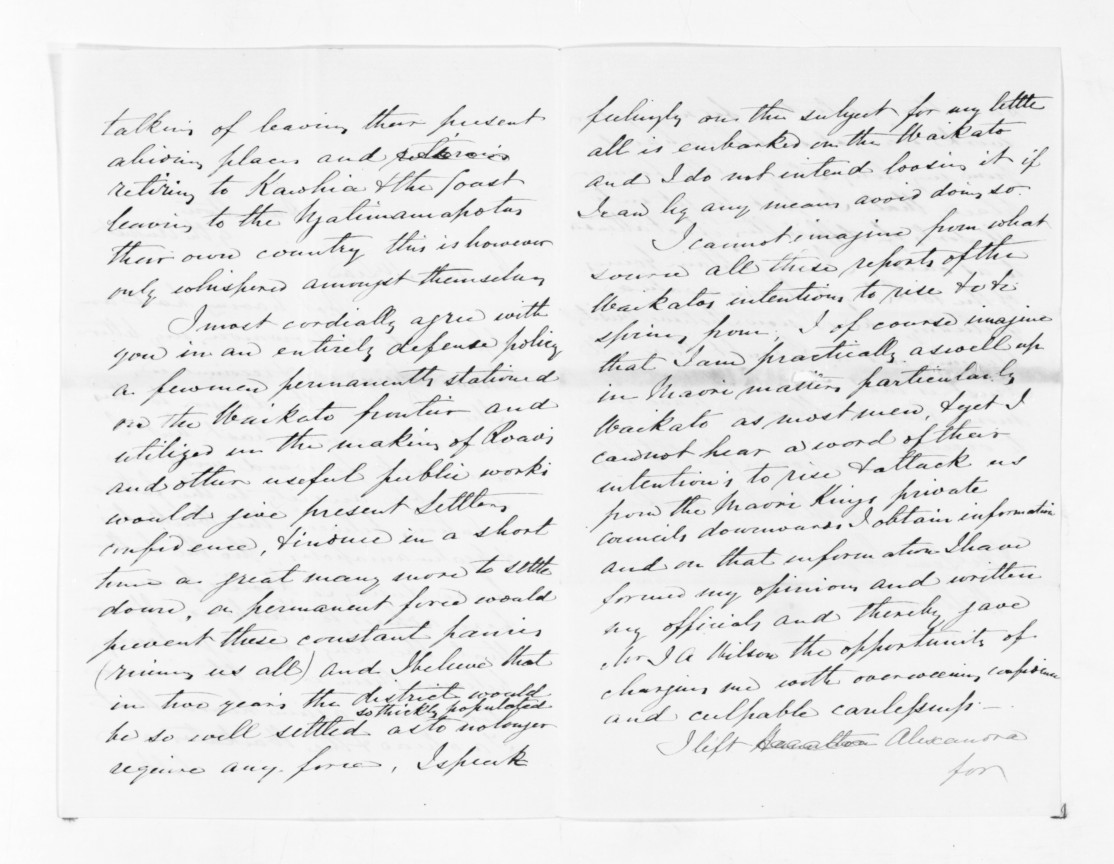 talking of leaving their present
abiding places and
retiring to Kawhia & the Coast
leaving to the Ngatimaniapotos
their own country this is however
only whispered amongst themselves
I most cordially agree with
you in an entirely defense policy
a few men permanently stationed
on the Waikato frontier and
utilized in the making of Roads
and other useful public works
would give present Settlers
confidence, & induce in a short
time a great many more to settle
down, a permanent force would
prevent these constant panics
(ruining us all) and I believe that
in two years the district would
be so well settled so thickly populated as to no longer
require any force, I speak
feelingly on this subject for my little
all is embarked in the Waikato
and I do not intend loosing it if
I can by any means avoid doing so
I cannot imagine from what
source all these reports of the
Waikatos intentions to rise &c &c
spring from, I of course imagine
that I am practically as well up
in Maori matters particularly
Waikato as most men, & yet I
cannot hear a word of their
intentions to rise & attack us
from the Maori Kings private
councils downwards I obtain information
and on that information I have
formed my opinions and written
my officials and thereby gave
Mr J A Wilson the opportunity of
charging me with overweening confidence
and culpable carelessness —
I left Hamilton Alexandra
for